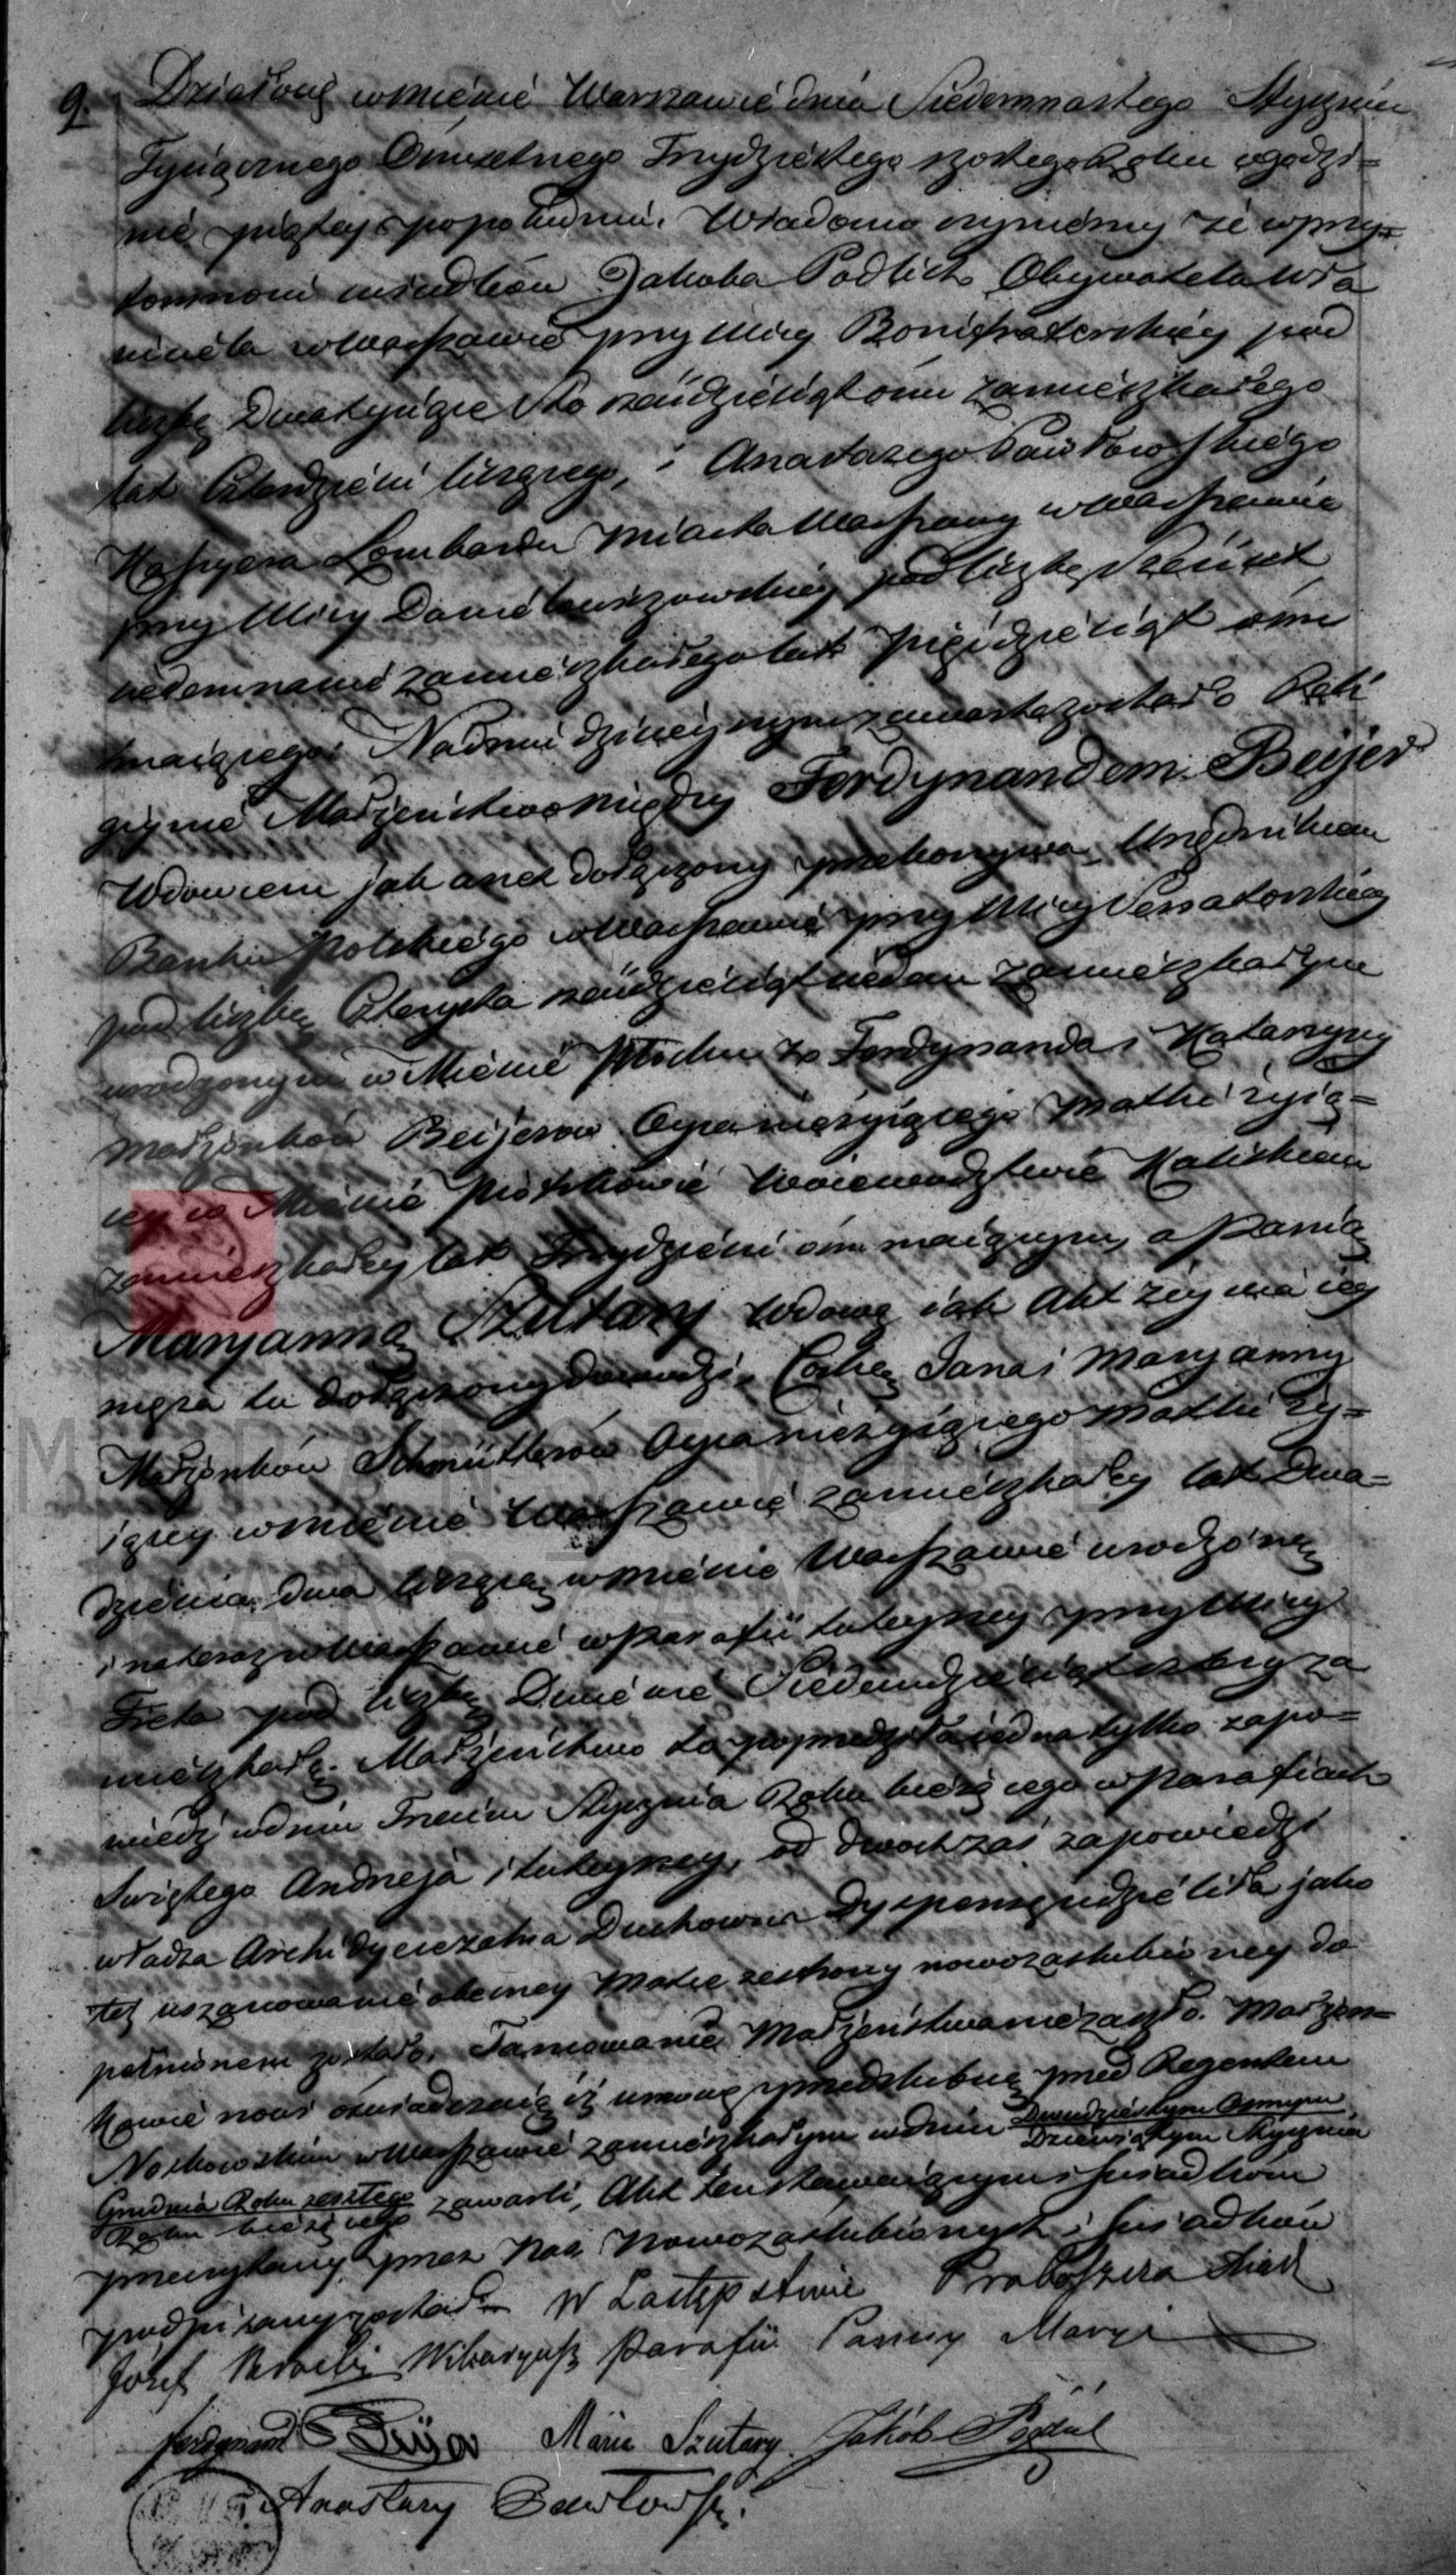 9. Działo się w mieście Warszawie dnia Siedemnastego Stycznia
Tysiącznego Ośmsetnego Trzydziestego szóstego Roku o godzi=
nie piątej popołudniu. Wiadomo czyniemy że w przy=
tomności świadków Jakoba Podlich Obywatela wła
ściciela w Warszawie przy Ulicy Bonifraterskiey pod
liczbą Dwa tysiące sto sześćdziesiąt ośm zamieszkałego
lat czterdzieści liczącego, i Anastazego Pawłowskiego
Kassyera Lombardu Miasta Warszawy w Warszawie
przy Ulicy Daniłowiczowskiey pod liczbą sześćset
siedemnaście zamieszkałego lat pięćdziesiąt ośm
maiącego. Na dniu dzisieyszym zawarte zostało Reli
giyne Małżeństwo między Ferdynandem Beijer
Wdowcem jak anex dołączony przekonywa, Urzędnikiem
Banku Polskiego w Warszawie przy Ulicy Senatorskiey
pod liczbą Czterysta sześćdziesiąt ieden zamieszkałym
urodzonym w Mieście Płocku z Ferdynanda i Katarzyny
małżonków Beijerów Oyca nieżyiącego Matki żyią=
cey w Mieście Piotrkowie Woiewództwie Kaliskiem
zamieszkałey lat Trzydzieści ośm maiącym, a Panią
Maryanną Szultany wdową iak Akt zeyścia iey
męża tu dołączony dowodzi, Córką Jana i Maryanny
Małżonków Schmütterów Oyca nieżyiącego matki ży=
iącey w mieście Warszawie zamieszkałey lat Dwa=
dzieścia dwa liczącą w mieście Warszawie urodzoną
i na teraz w Warszawie w parafii tuteyszey przy Ulicy
Freta pod liczbą Dwieście Siedemdziesiąt cztery za
mieszkałą. Małżeństwo to poprzedziła iedna tylko zapo=
wiedź w dniu Trzecim Stycznia Roku bieżącego w Parafiach
Świętego Andrzeja i tuteyszey, od dwóch zaś zapowiedzi
władza Archidyecezalna Duchowna Dyspensę udzieliła jako
też uszanowanie obecney Matce ze strony nowozaślubioney do
pełnionem zostało. Tamowanie Małżeństwa nie zaszło. Małżon=
kowie nowi oświadczaią iż umowę przedślubną przed Regentem
Noskowskim w Warszawie zamieszkałym w dniu Dwudziestym Osmym
Dziewiątym Stycznia
Grudnia Roku zeszłego zawarli, Akt ten stawaiącym i świadkom
Roku bieżącego
przeczytany przez Nas Nowozaślubionych i świadków
podpisany został. W Zastępstwie Proboszcza Xiądz
Józef Wikaryusz Parafii Panny Maryi
Ferdynand Beijer Marie Szultany Jakób Podlich
Anastazy Pawłowski.